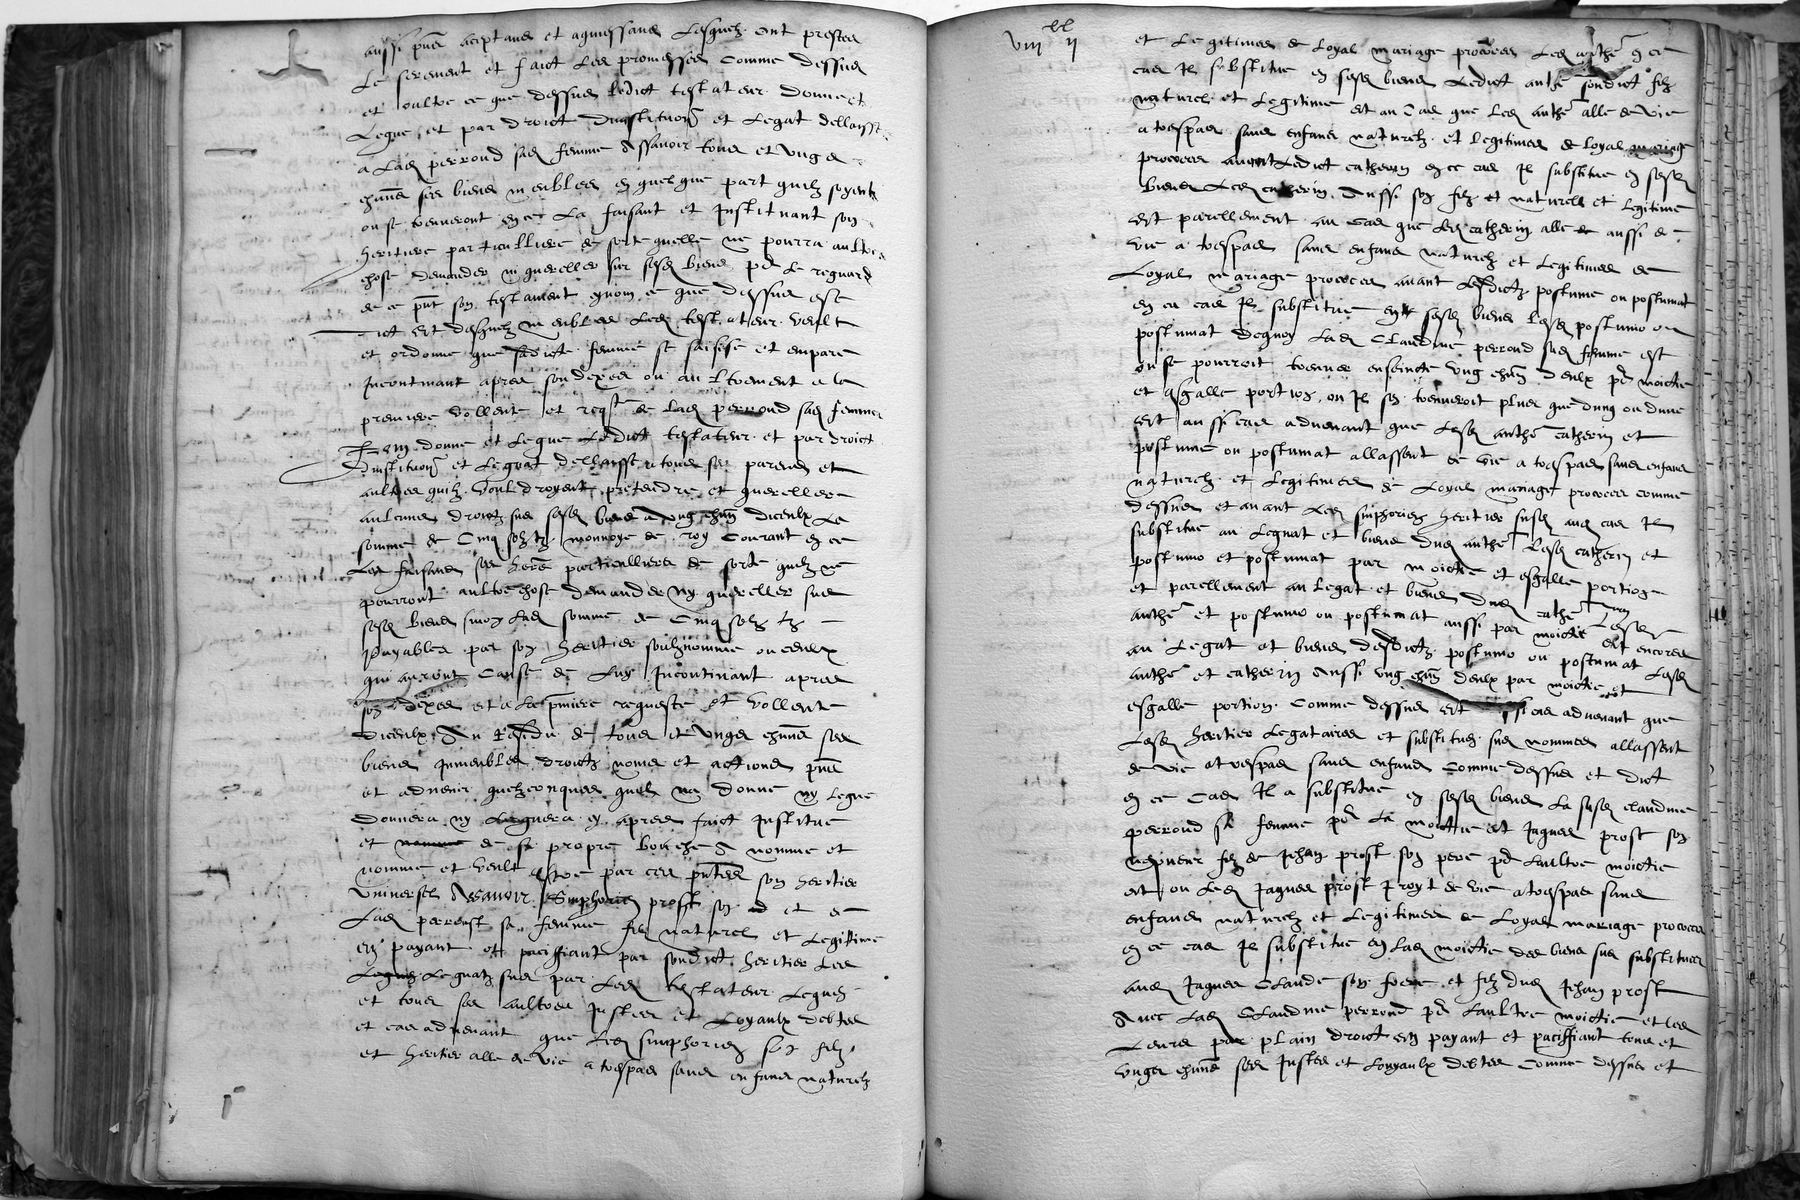 aussi pnt aceptans et aquiessans lesquelz ont prester
le serement et faict les promesses comme dessus
et oultre ce que dessus ledict testateur donne et
legue et par droict dinstitution et legat dellaisse
a lad perrond sad femme assavoir tous et unges
chuns ses biens meubles en quelque part quilz soyent
ou se treuveront en ce la faisant et instituant son
heritiere particulliere de sorte quelle ne pourra aultre
chose demander ny quereller sur sesd biens pd le reguard
de ce pnt son testament synom ce que dessus est
dict Et desquelz meubles led testateur veult
et ordonne que sadicte femme se saisisse et empare
incontinant apres son dexes ou aultrement a la
premiere vollente et reqte de lad perrond sad femme
Item donne et legue ledict testateur et par droict
dinstitution et legat dellaisse a tous ses parens et
aultres quilz vouldroyent pretendre et quereller
aulcuns droictz sus sesd biens a ung chun diceulx la
somme de cinq solz tz monnoye de roy courant en ce
les faisans ses heres particulliers de sorte quilz ne
pourront aultre chose demander ny quereller sus
sesd biens sinon lad somme de cinq solz tz
payables par son heritier soubznomme ou ceulx
qui auront cause de luy incontinant apres
son dexes et a la pmiere requeste et vollente
diceulx Au residu de tous et unges chuns ses
biens inmeubles droictz noms et actions pns
et advenir quelzconques quil na donne ny legue
donnera ny leguera cy apres faict institue
et de sa propre bouche a nomme et
nomme et veult estre par ces pntes son heritier
universel Assavoir Simphorien prost son et de
lad perrond sa femme filz naturel et legitime
en payant et paciffiant par sondict heritier les
leguatz sus par led testateur leguez
et tous ses aultres justes et loyaulx debtes
et cas advenant que led simphorien son filz
et heritier alle de vie a trespas sans enfans naturelz
viii xx ii
et legitimes de loyal mariage procrees led anthe en ce
cas il substitue en sesd biens ledict anthe sondict filz
naturel et legitime Et au cas que led anthe alle de vie
a trespas sans enfans naturelz et legitimes de loyal mariage
procrees avant ledict catherin en ce cas il substitue en sesd
biens led catherin aussi son filz et naturel et legitime
Et parellement au cas que led catherin alle aussi de
vie a trespas sans enfans naturelz et legitimes de
loyal mariage procrees avant lesdictz postume ou postumat
en ce cas il substitue en sesd biens lesd postumo ou
postumat dequoy lad Claudine perrond sad femme est
ou se pourroit treuver enseincte ung chun deulx pd moictie
et esgalle portion ou il sen treuveroit plus que dung ou dune
Et aussi cas advenant que lesd anthe catherin et
postume ou postumat allassent de vie a trespas sans enfans
naturelz et legitimes de loyal mariage procrees comme
dessus et avant led simphorien heritier susd aud cas il
substitue au leguat et biens dud anthe lesd catherin et
postumo et postumat par moictie et esgalle portion
et parellement au legat et biens dud catherin lesd
anthe et postumo ou postumat aussi par moictie Et encores
au legat et biens desdictz postumo ou postumat lesd
anthe et catherin aussi ung chun deulx par moictie et
esgalle portion comme dessus Et aussi cas advenant que
lesd heritier legataires et substituez sus nommes allassent
de vie a trespas sans enfans comme dessus et dict
en ce cas il a substitue en sesd biens la susd claudine
perrond sa femme pd la moictie Et Jaques prost son
nepveur filz de Jehan prost son pere pd laultre moictie
Et ou led Jaques prost yroyt de vie a trespas sans
enfans naturelz et legitimes de loyal mariage procrees
en ce cas il substitue en lad moictie des biens sus substituez
aud Jaques Claude son frere et filz dud Jehan prost
Avec lad Claudine perrond pd laultre moictie et les
leurs par plain droict en payant et paciffiant tous et
unges chuns ses justes et louyaulx debtes comme dessus et